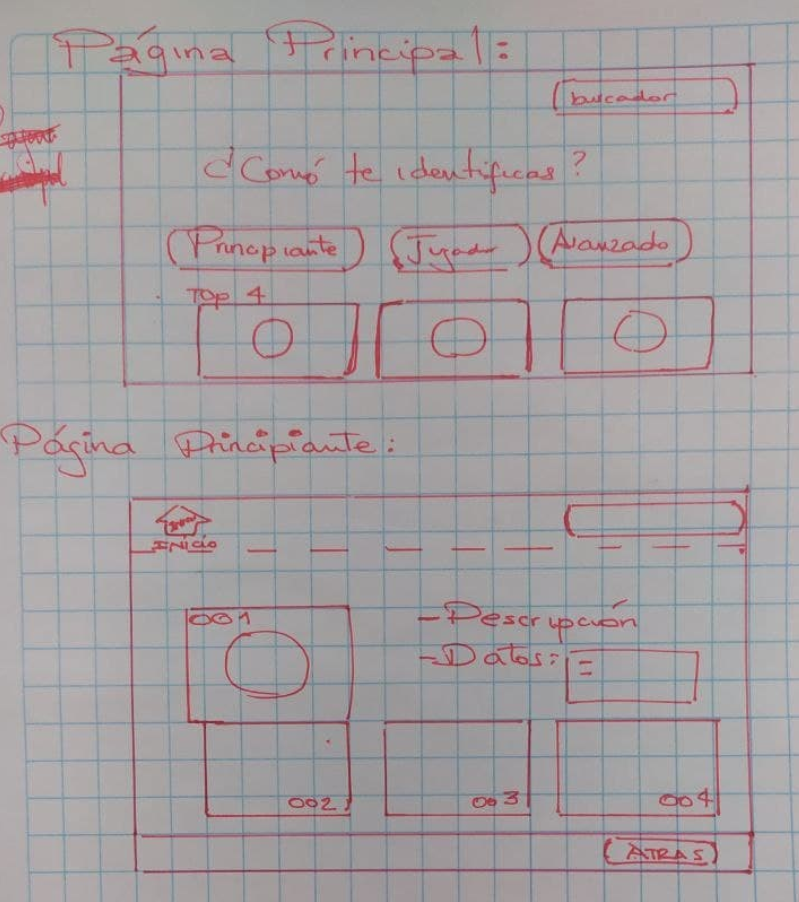 Página Principal:
buscador
¿Comó te identificas?
Principiante
Jugador
Avanzado
Top 4
Página Principiante:
INICIO
001
- Descripción
- Datos: =
002
003
004
ATRAS